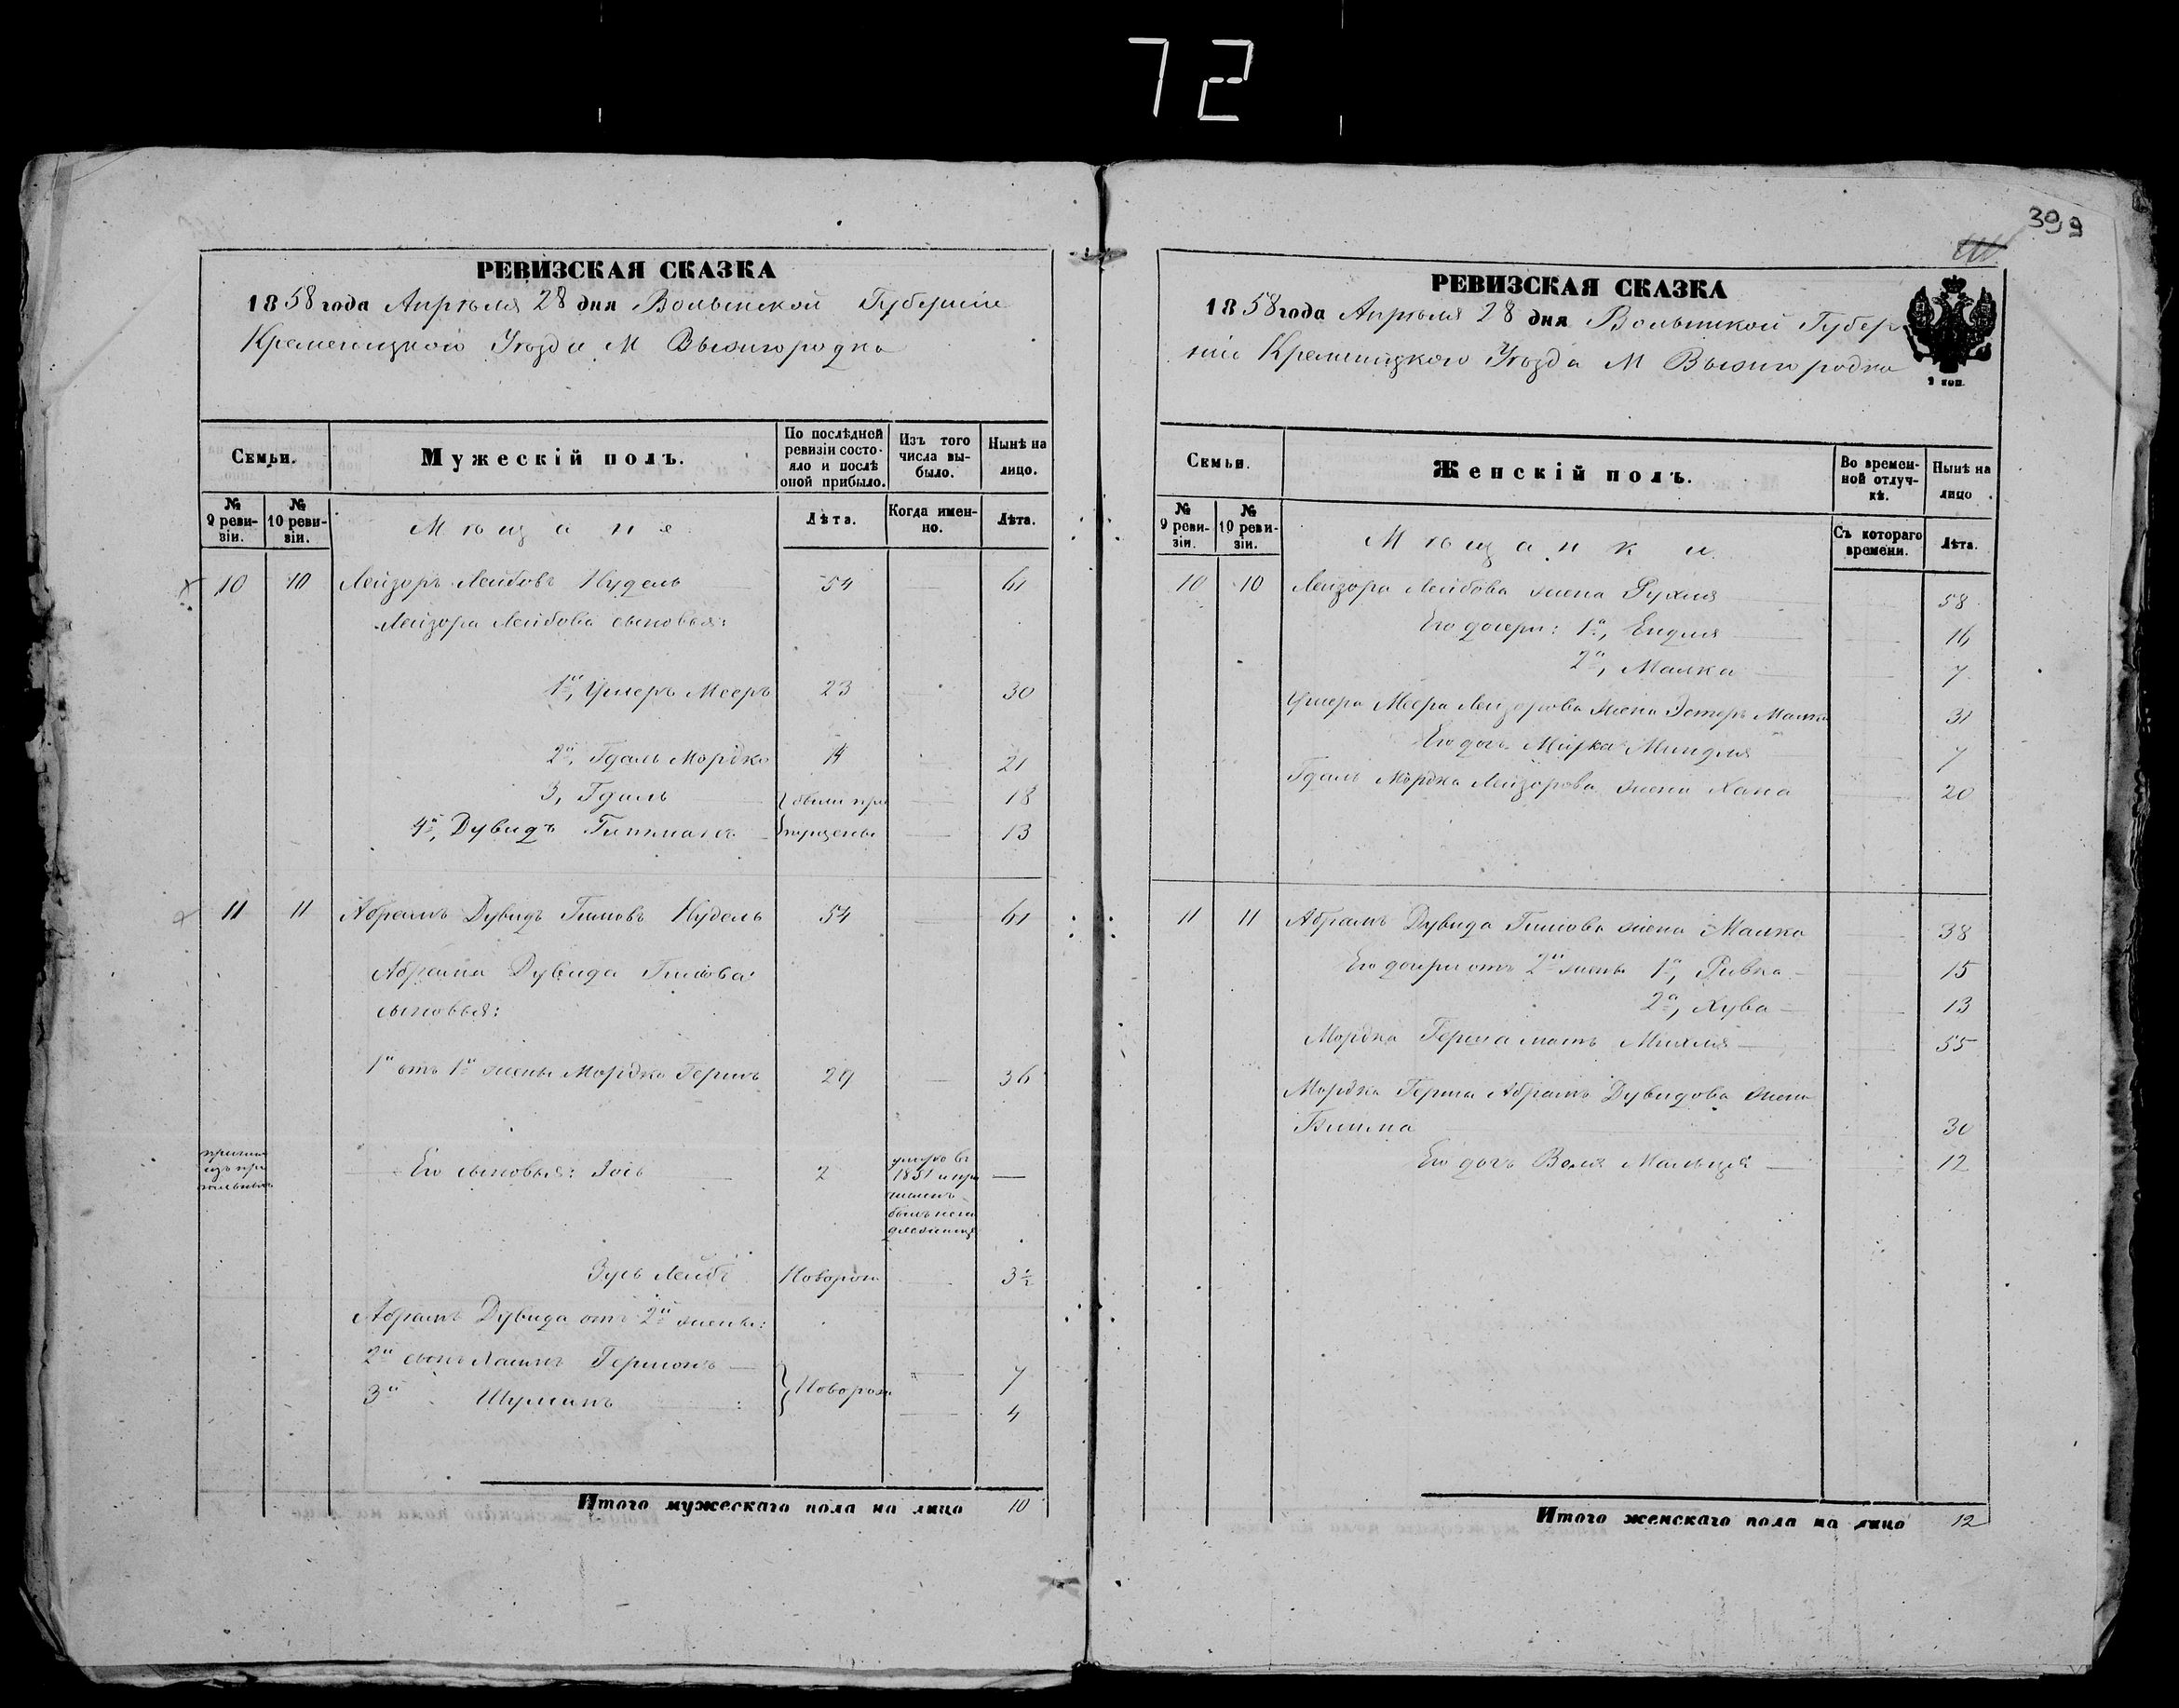 72
399
РЕВИЗСКАЯ СКАЗКА
1858 года Апрѣля 28 дня Волынской Губерніи
Кременецкого Уѣзда М Вышгородка
Семьи.
Мужескій полъ.
По послѣдней ревизіи состояло и послѣ оной прибыло.
Изъ того числа выбыло.
Нынѣ на лицо.
№ 9 ревизіи.
№ 10 ревизіи.
Мѣщане
Лѣта.
Когда именно.
Лѣта.
10 10 Лейзоръ Лейбовъ Нудель 54 — 61
Лейзора Лейбова сыновья:
1й, Ушеръ Мееръ 23 — 30
2й, Гдаль Мордко 14 — 21
3, Гдаль 18
были пропущены
4й, Дувидъ 13
11 11 Абрамъ Дувидъ Гимовъ Нудель 54 — 61
Абрама Дувида Гимова
сыновья:
1й отъ 1й жены Мордко Гершъ 29 — 36
Его сыновья: Зось 2 —
умеръ въ 1851
Зусь Лейбъ Новорож 3½
Абрамъ Дувида отъ 2й жены:
2й сынъ Хаимъ Гершонъ — 7
Новорож
3й Шулимъ — 4
Итого мужескаго пола на лицо 10
РЕВИЗСКАЯ СКАЗКА
1858 года Апрѣля 28 дня Волынской Губер
ніи Кременецкого Уѣзда М Вышгородка
9 коп.
Семьи.
Женскій полъ.
Во временной отлучкѣ.
Нынѣ на лицо
№ 9 ревизіи.
№ 10 ревизіи.
Мѣщанки
Съ котораго времени.
Лѣта.
10 10 Лейзора Лейбова жена Рухля 58
Его дочери: 1я, Ендля 16
2я, Малка 7
Ушера Меера Лейзорова жена Эстеръ Малка 31
Его дочь Миндля 7
Гдаль Мордка Лейзорова жена Хана 20
11 11 Абрамъ Дувида Гимова жена Малка 38
Его дочери отъ 2й жены 1я, Ривка 15
2я, Хува 13
Мордка Герша мать Михля 55
Мордка Герша Абрамъ Дувидова жена
30
Его дочь 12
Итого женскаго пола на лицо 12